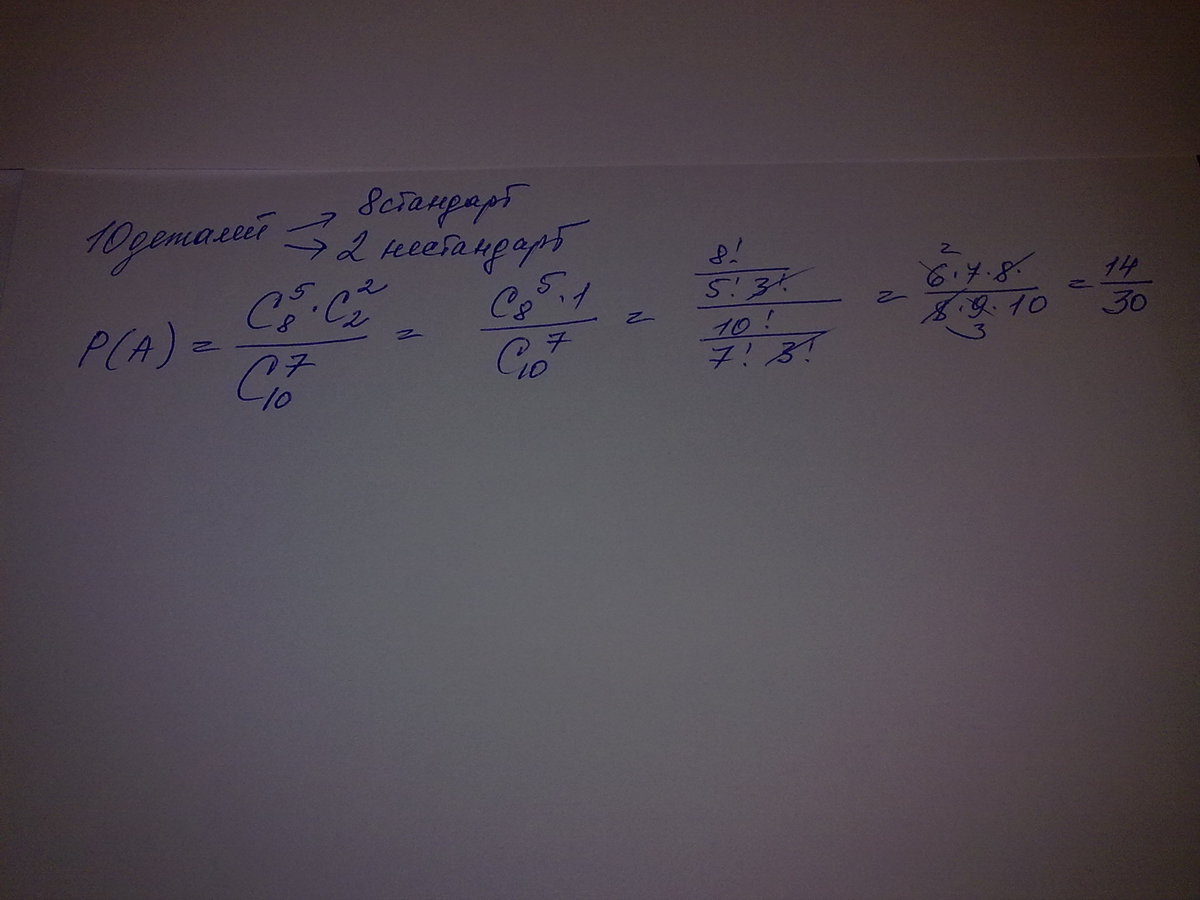 10 деталей → 8 стандарт
→ 2 нестандарт
P(A) = (C₈⁵ · C₂²) / C₁₀⁷ = (C₈⁵ · 1) / C₁₀⁷ = (8! / (5! 3!)) / (10! / (7! 3!)) = (6 · 7 · 8 ·) / (8 · 9 · 10) = 14 / 30
2
3